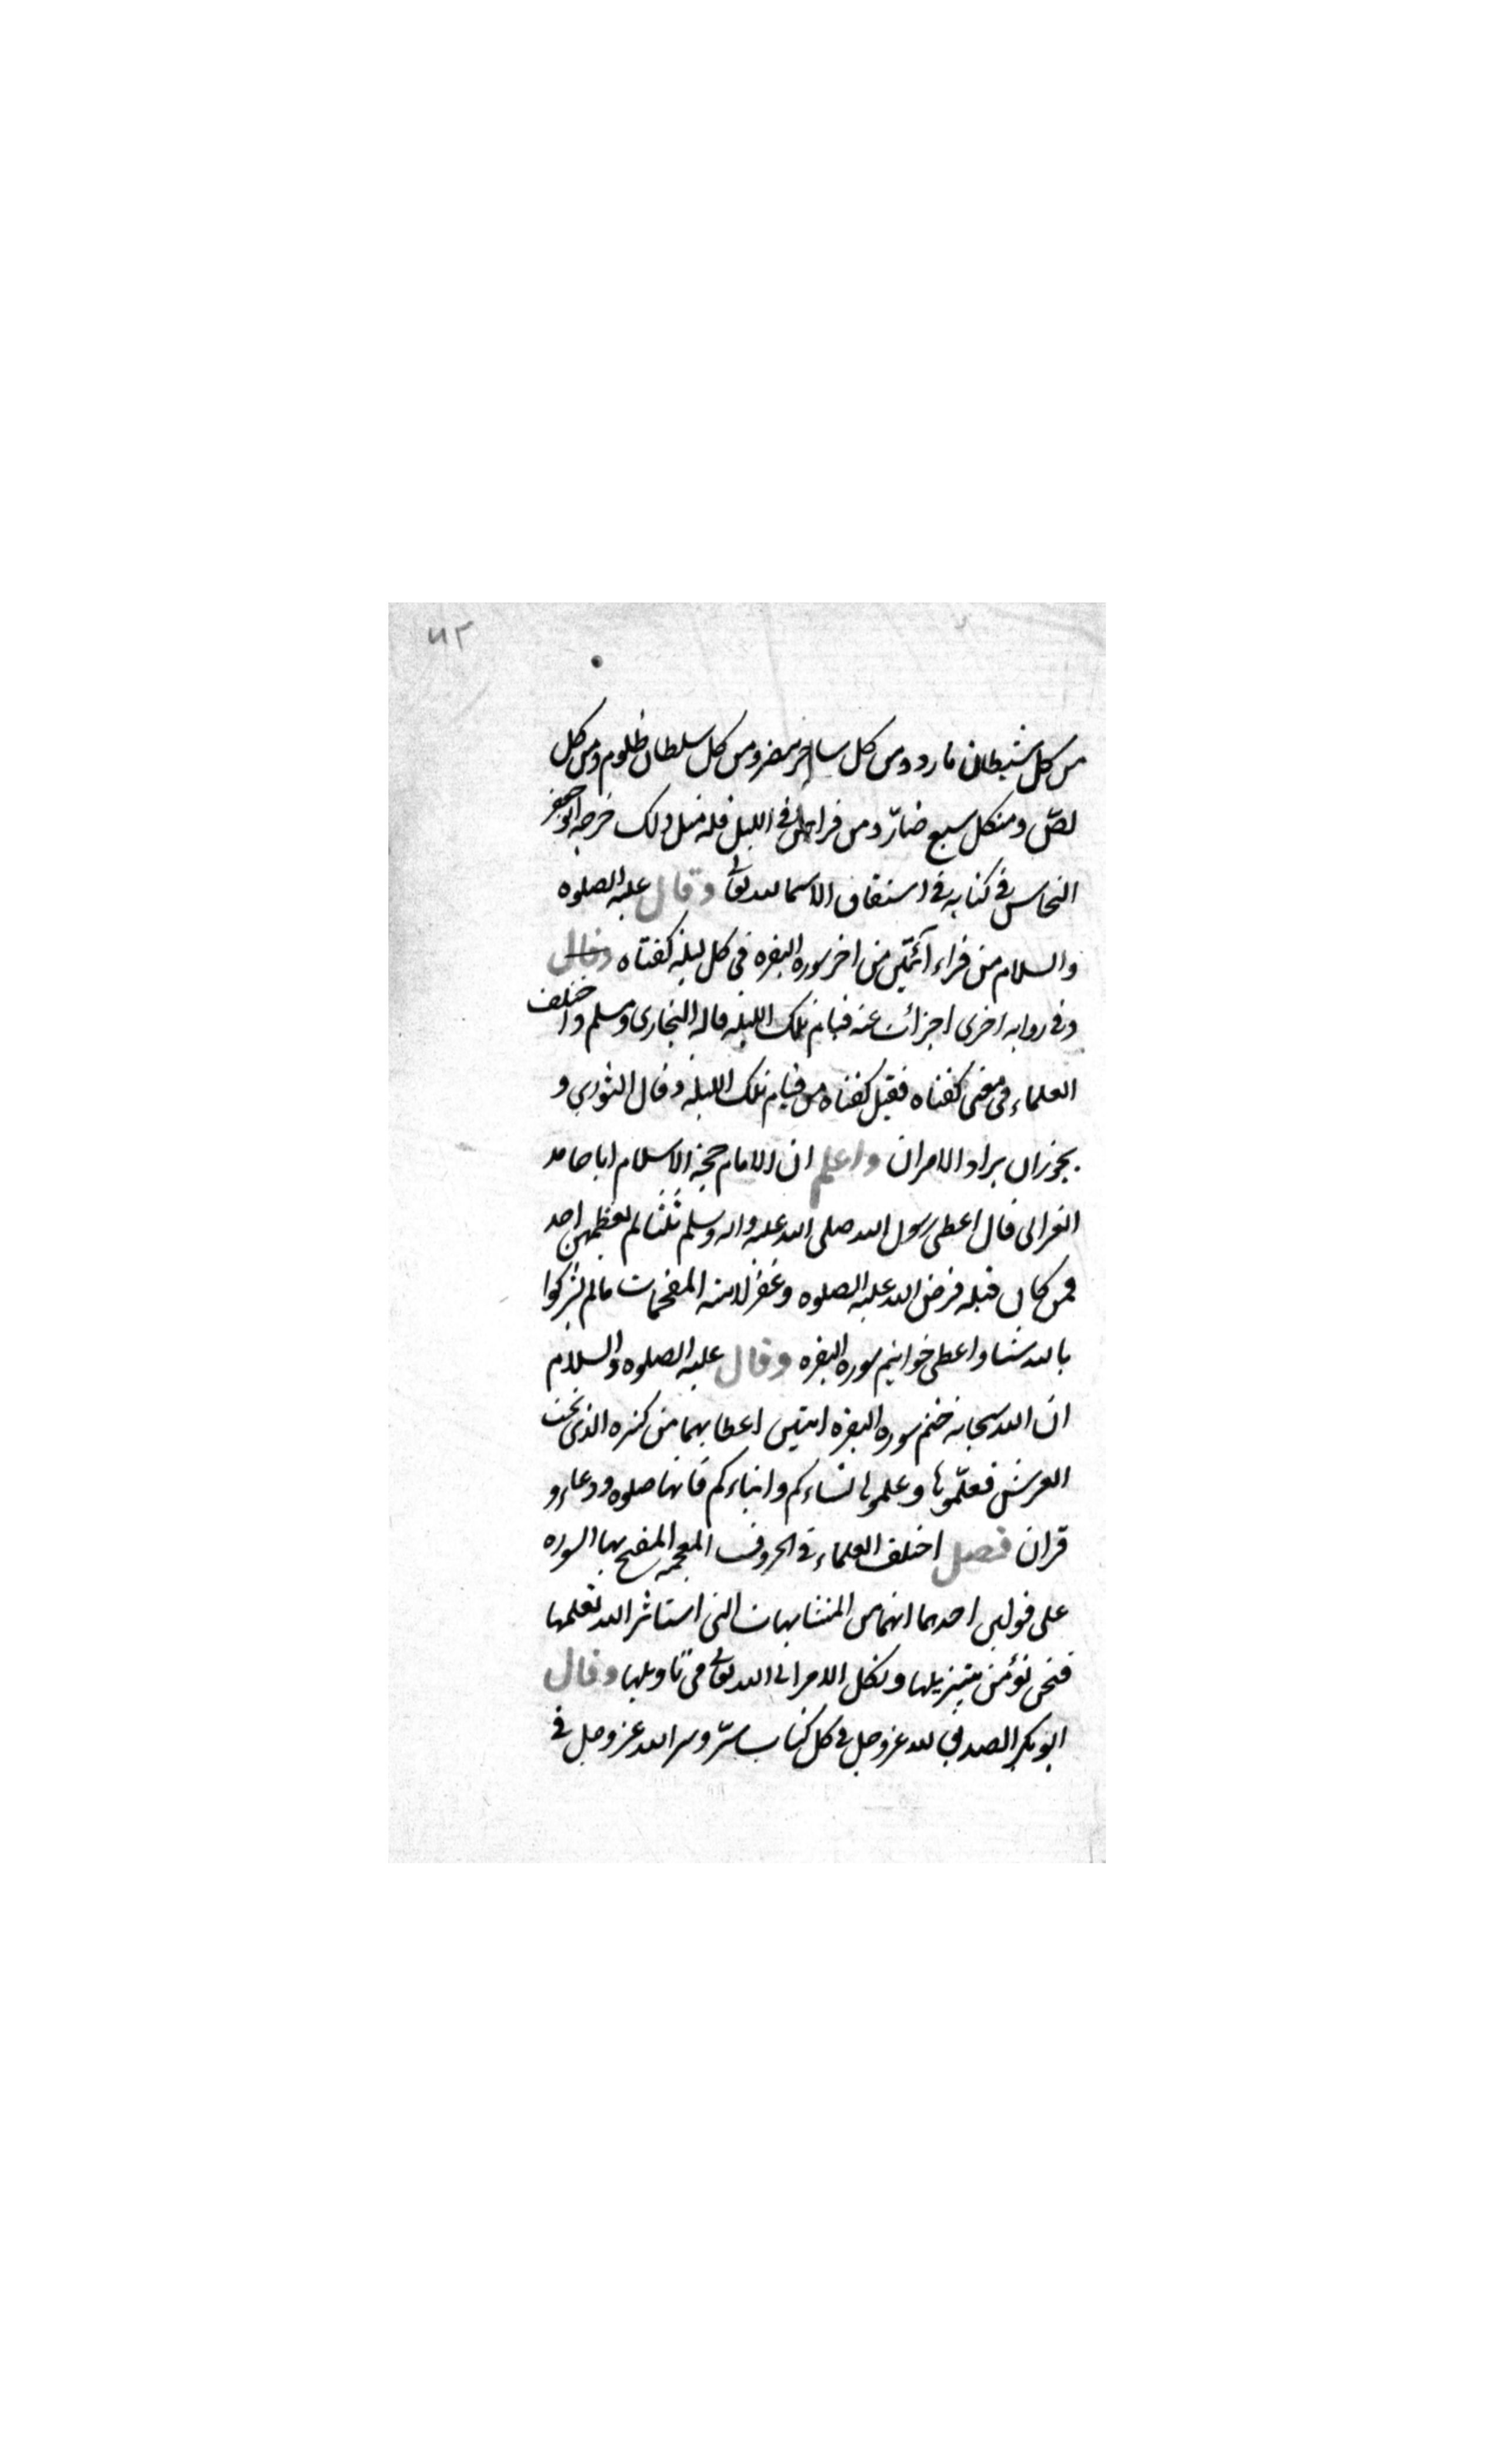 من كل شيطان مارد ومن كل ساحر مضر ومن كل سلطان ظلوم ومن كل
لصّ ومنكل سبع ضارّ ومن قراهن فى الليل فله مثل ذلك خرجه ابو جعفر
النحاس فى كتابه فى اشتقاق الاسما لله تعالى وقال عليه الصلوه
والسلام من قراء آئتين من اخر سوره البقره فى كل ليله كفتاه وقال
وفى روايه اخرى اجزائت عنه قيام تلك الليله قاله البخارى ومسلم واختلف
العلماء فى معنى كفتاه فقيل كفتاه من قيام تلك الليله وقال النووي و
يجوز ان يراد الامران واعلم ان الامام حجة الاسلام ابا حامد
الغزالى قال اعطى رسول الله صلى الله عليه واله وسلم ثلثا لم يعطهن احد
ممن كان قبله فرض الله عليه الصلوه وغفر لامته المقحمات مالم يشركوا
بالله شيئا واعطى خواتيم سوره البقره وقال عليه الصلوه والسلام
ان الله سبحانه ختم سوره البقره ايتين اعطا بهما من كنزه الذى تحت
العرش فعلّموها وعلموها نساءكم وابناءكم فانها صلوه ودعاء و
قران فصل اختلف العلماء فى الحروف المعجمه المفتح بها السوره
على قولين احدهما انها من المتشابهات التى استاثر الله بعلمها
فنحن نؤمن بتنزيلها ونكل الامر الى الله تعالى فى تاويلها وقال
ابو بكر الصديق لله عز وجل فى كل كتاب سرّ وسر الله عز وجل فى